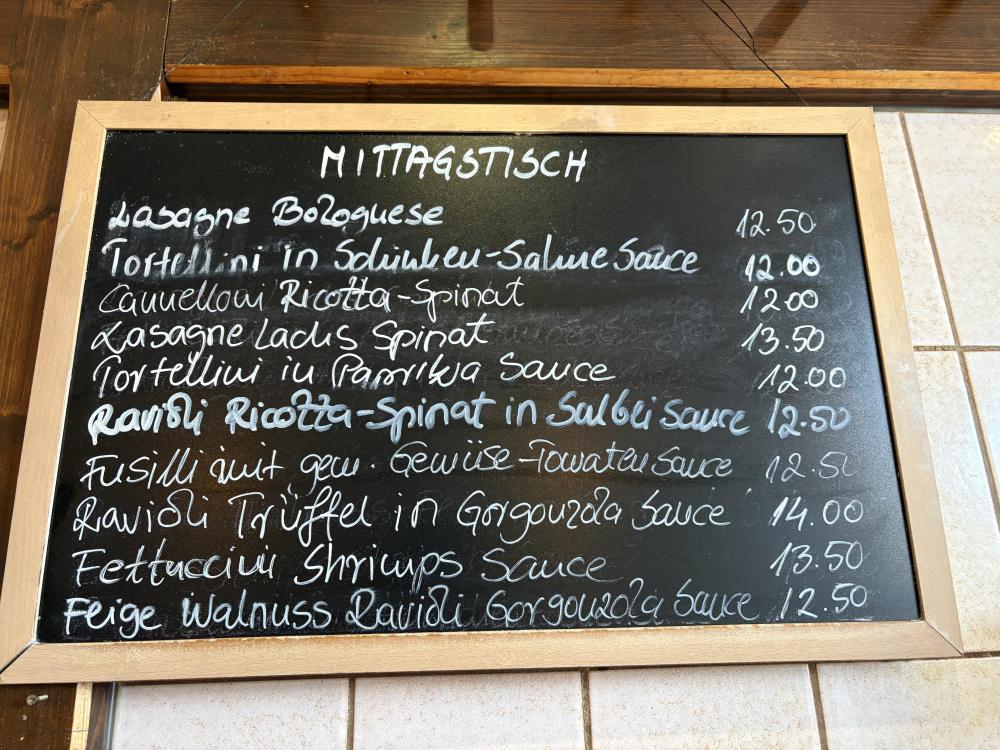 MITTAGSTISCH
Lasagne Bolognese 12.50
Tortellini in Schinken-Sahne Sauce 12.00
Cannelloni Ricotta-Spinat 12.00
Lasagne Lachs Spinat 13.50
Tortellini in Paprika Sauce 12.00
Ravioli Ricotta-Spinat in Salbei Sauce 12.50
Fusilli mit gem. Gemüse-Tomaten Sauce 12.50
Ravioli Trüffel in Gorgonzola Sauce 14.00
Fettuccini Shrimps Sauce 13.50
Feige Walnuss Ravioli Gorgonzola Sauce 12.50